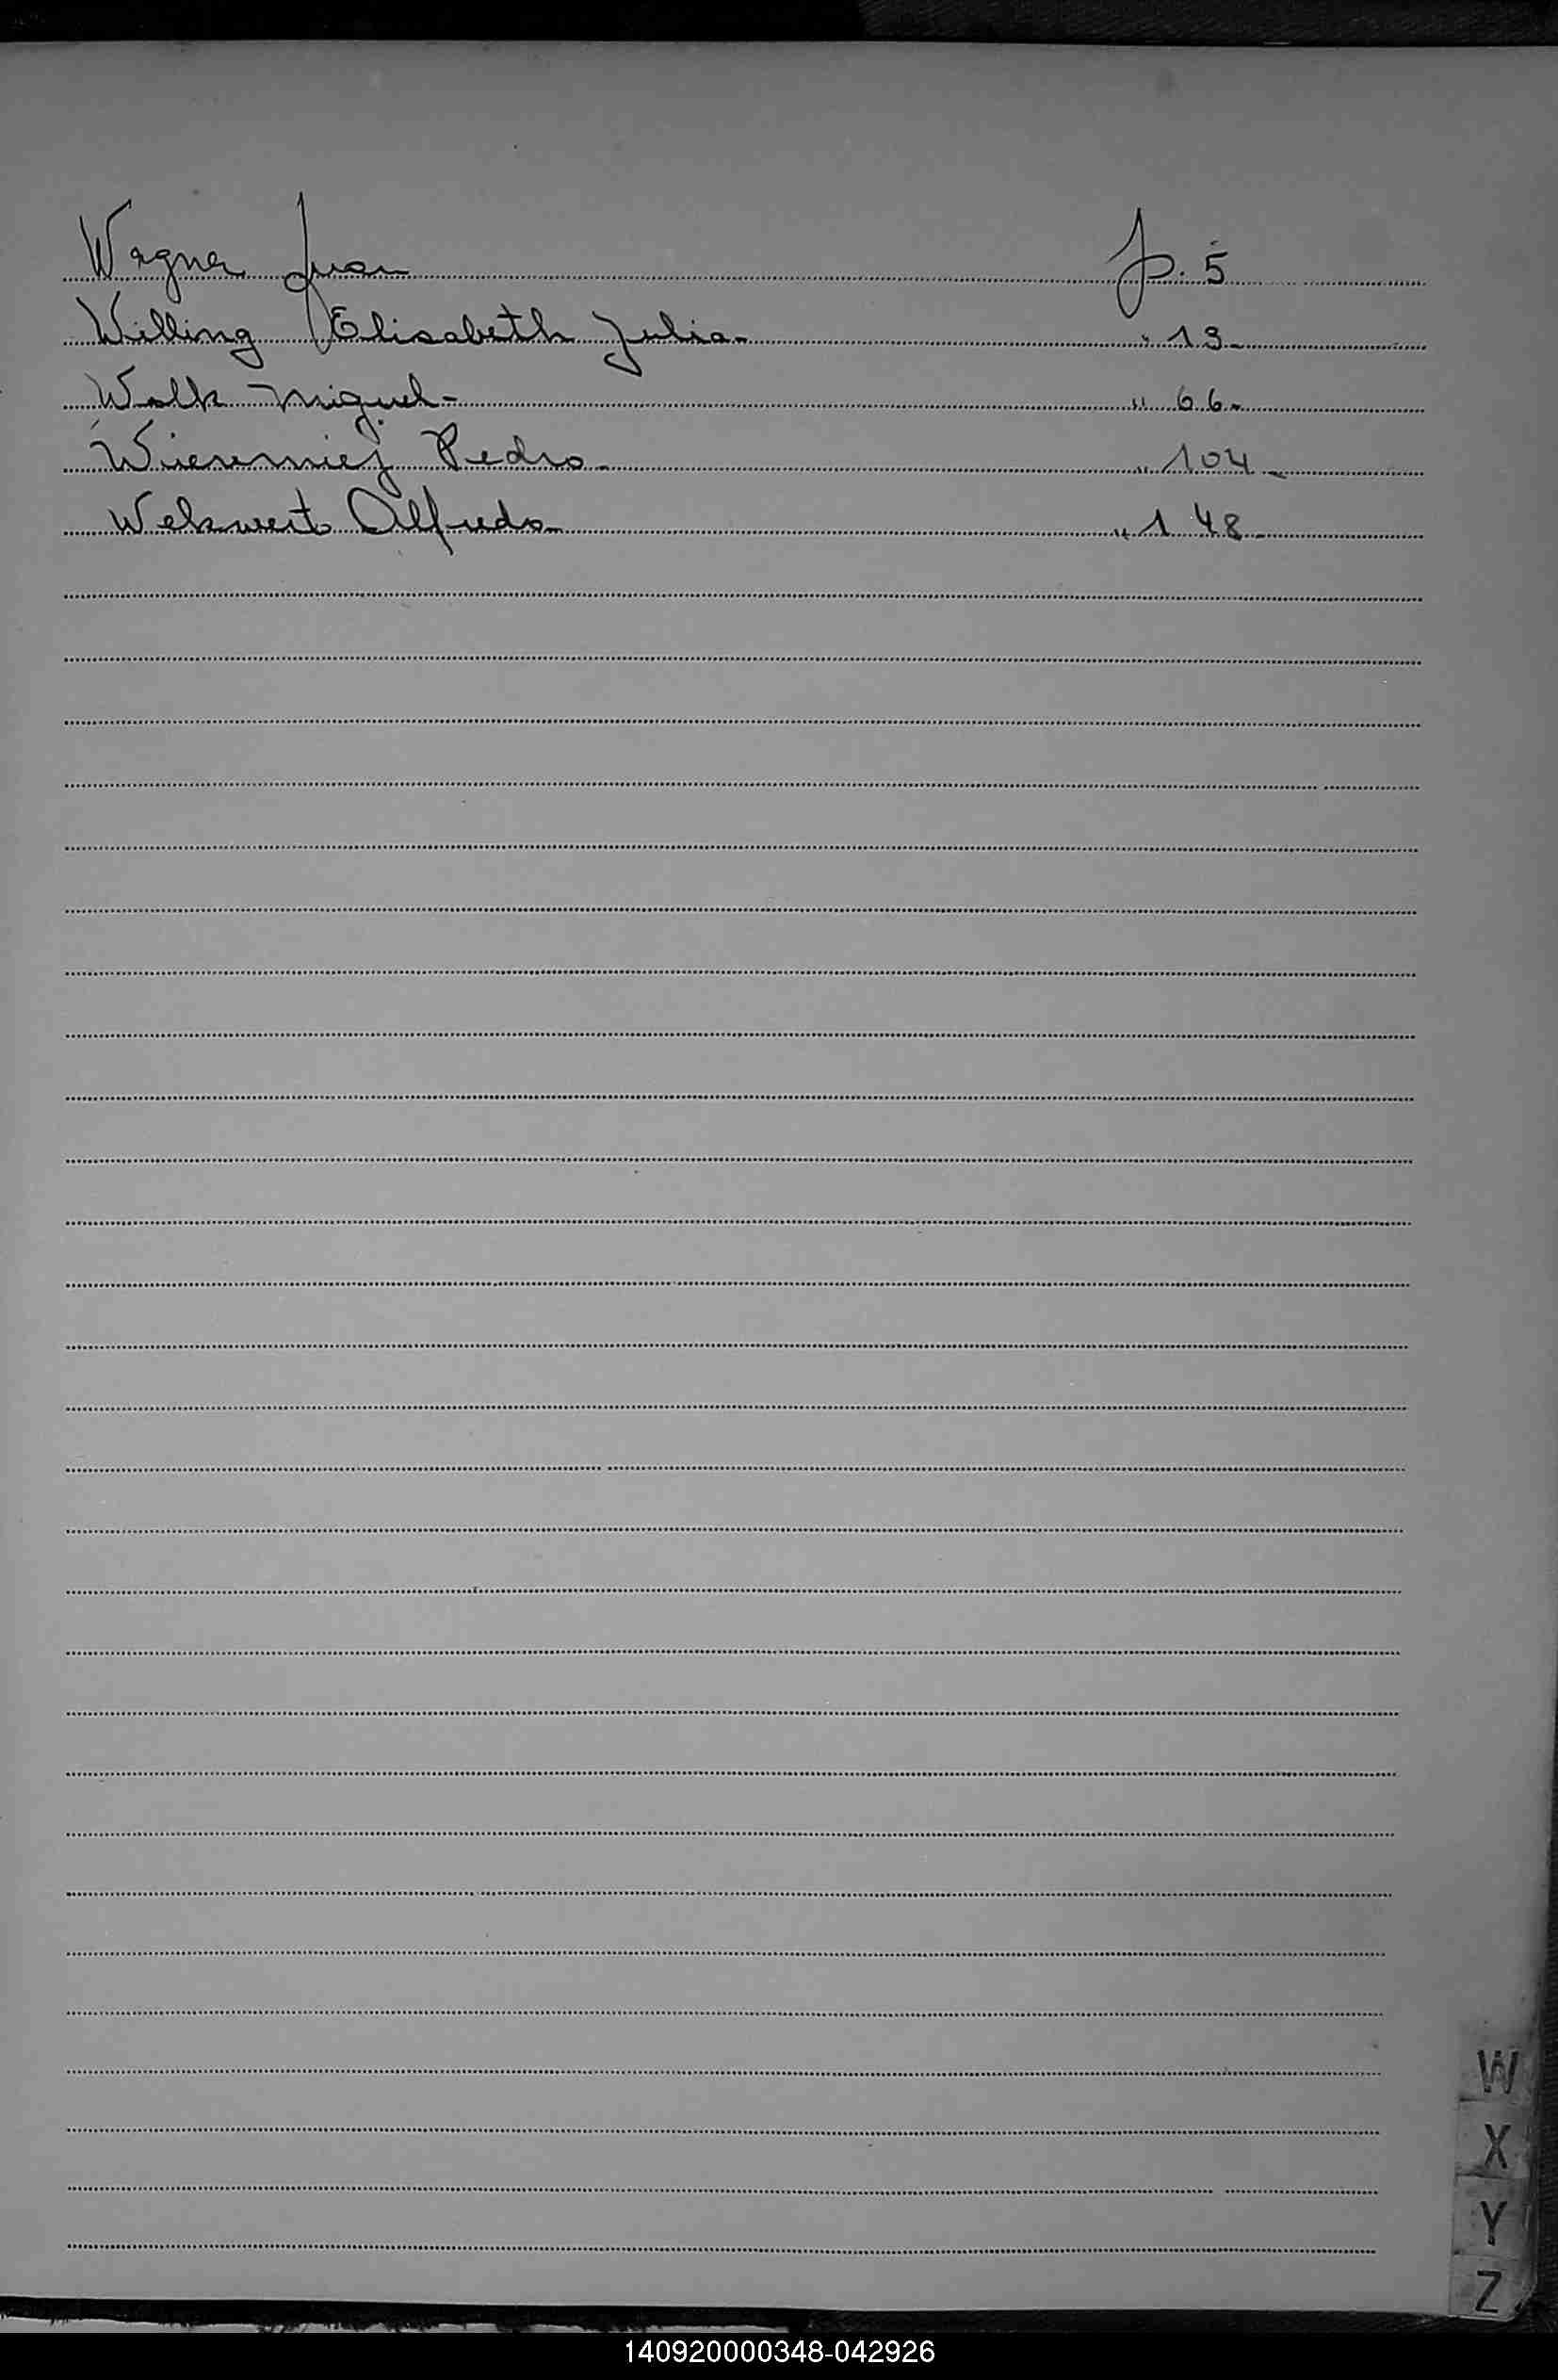 Wagner Juan p. 5
Willing Elisabeth Julia- " 13-
Walk Miguel- " 66-
Wieremiej Pedro- " 104-
Wekwert Alfredo- " 148-
W
X
Y
Z
140920000348-042926